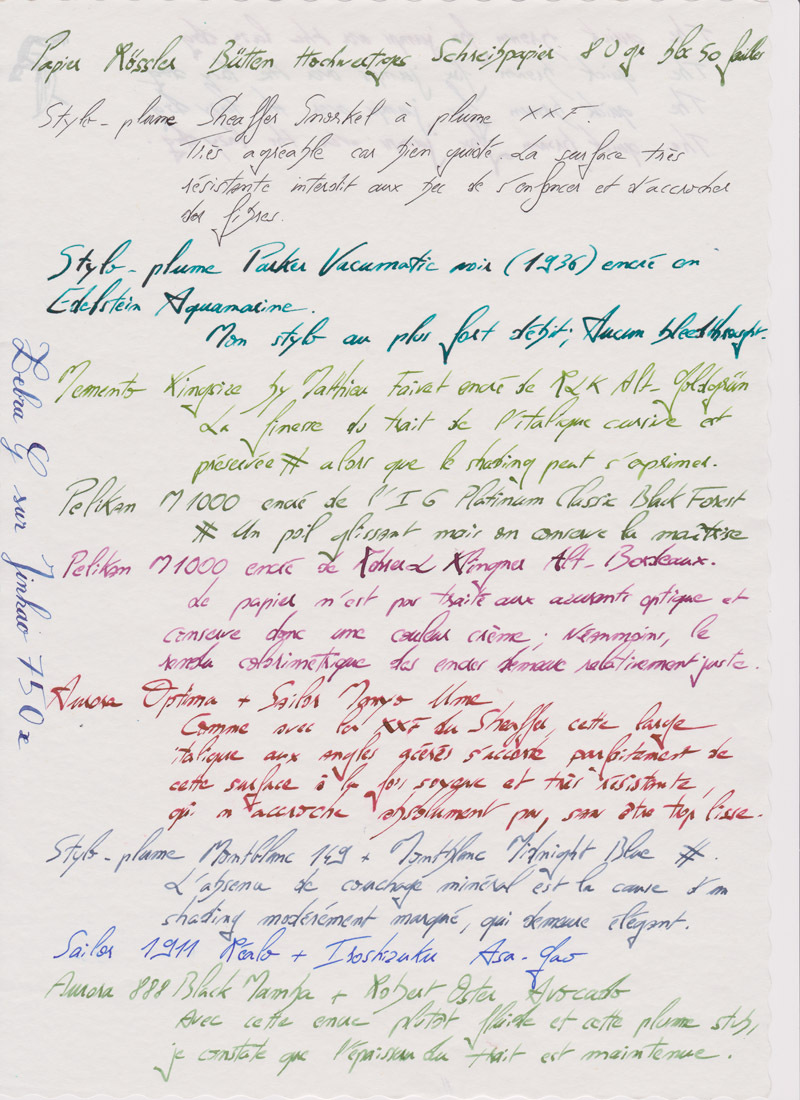 Papier Rössler Bütten Hochwertiges Schreibpapier 80 gr bloc 50 feuilles
Stylo-plume Sheaffer Snorkel à plume XXF.
Très agréable car bien guidé. La surface très
résistante interdit aux bec de s'enfoncer et d'accrocher
des fibres.
Stylo-plume Parker Vacumatic noir (1936) encré en
Edelstein Aquamarine.
Mon stylo au plus fort débit; Aucun bleedthrough.
Memento Kingsize by Mathieu Faivet encré de R&K Alt-Goldgrün
La finesse du trait de l'italique cursive est
préservée # alors que le shading peut s'exprimer.
Pelikan M1000 encré de l'IG Platinum Classic Black Forest
# Un poil glissant mais on conserve la maîtrise
Pelikan M1000 encré de Rohrer & Klingner Alt-Bordeaux.
Le papier n'est pas traité aux azurants optique et
conserve donc une couleur crème; Néanmoins, le
rendu colorimétrique des encres demeure relativement juste.
Aurora Optima + Sailor Ume
Comme avec la XXF du Sheaffer, cette large
italique aux angles acérés s'accorde parfaitement de
cette surface à la fois soyeuse et très résistante,
qui n'accroche absolument pas, sans être trop lisse.
Stylo-plume Montblanc 149 + Montblanc Midnight Blue #.
L'absence de couchage minéral est la cause d'un
shading modérément marqué, qui demeure élégant.
Sailor 1911 Realo + Iroshizuku Asa-Gao
Aurora 888 Black Mamba + Robert Oster Avocado
Avec cette encre plutôt fluide et cette plume stub,
je constate que l'épaisseur du trait est maintenue.
Zebra G sur Jinhao 750x